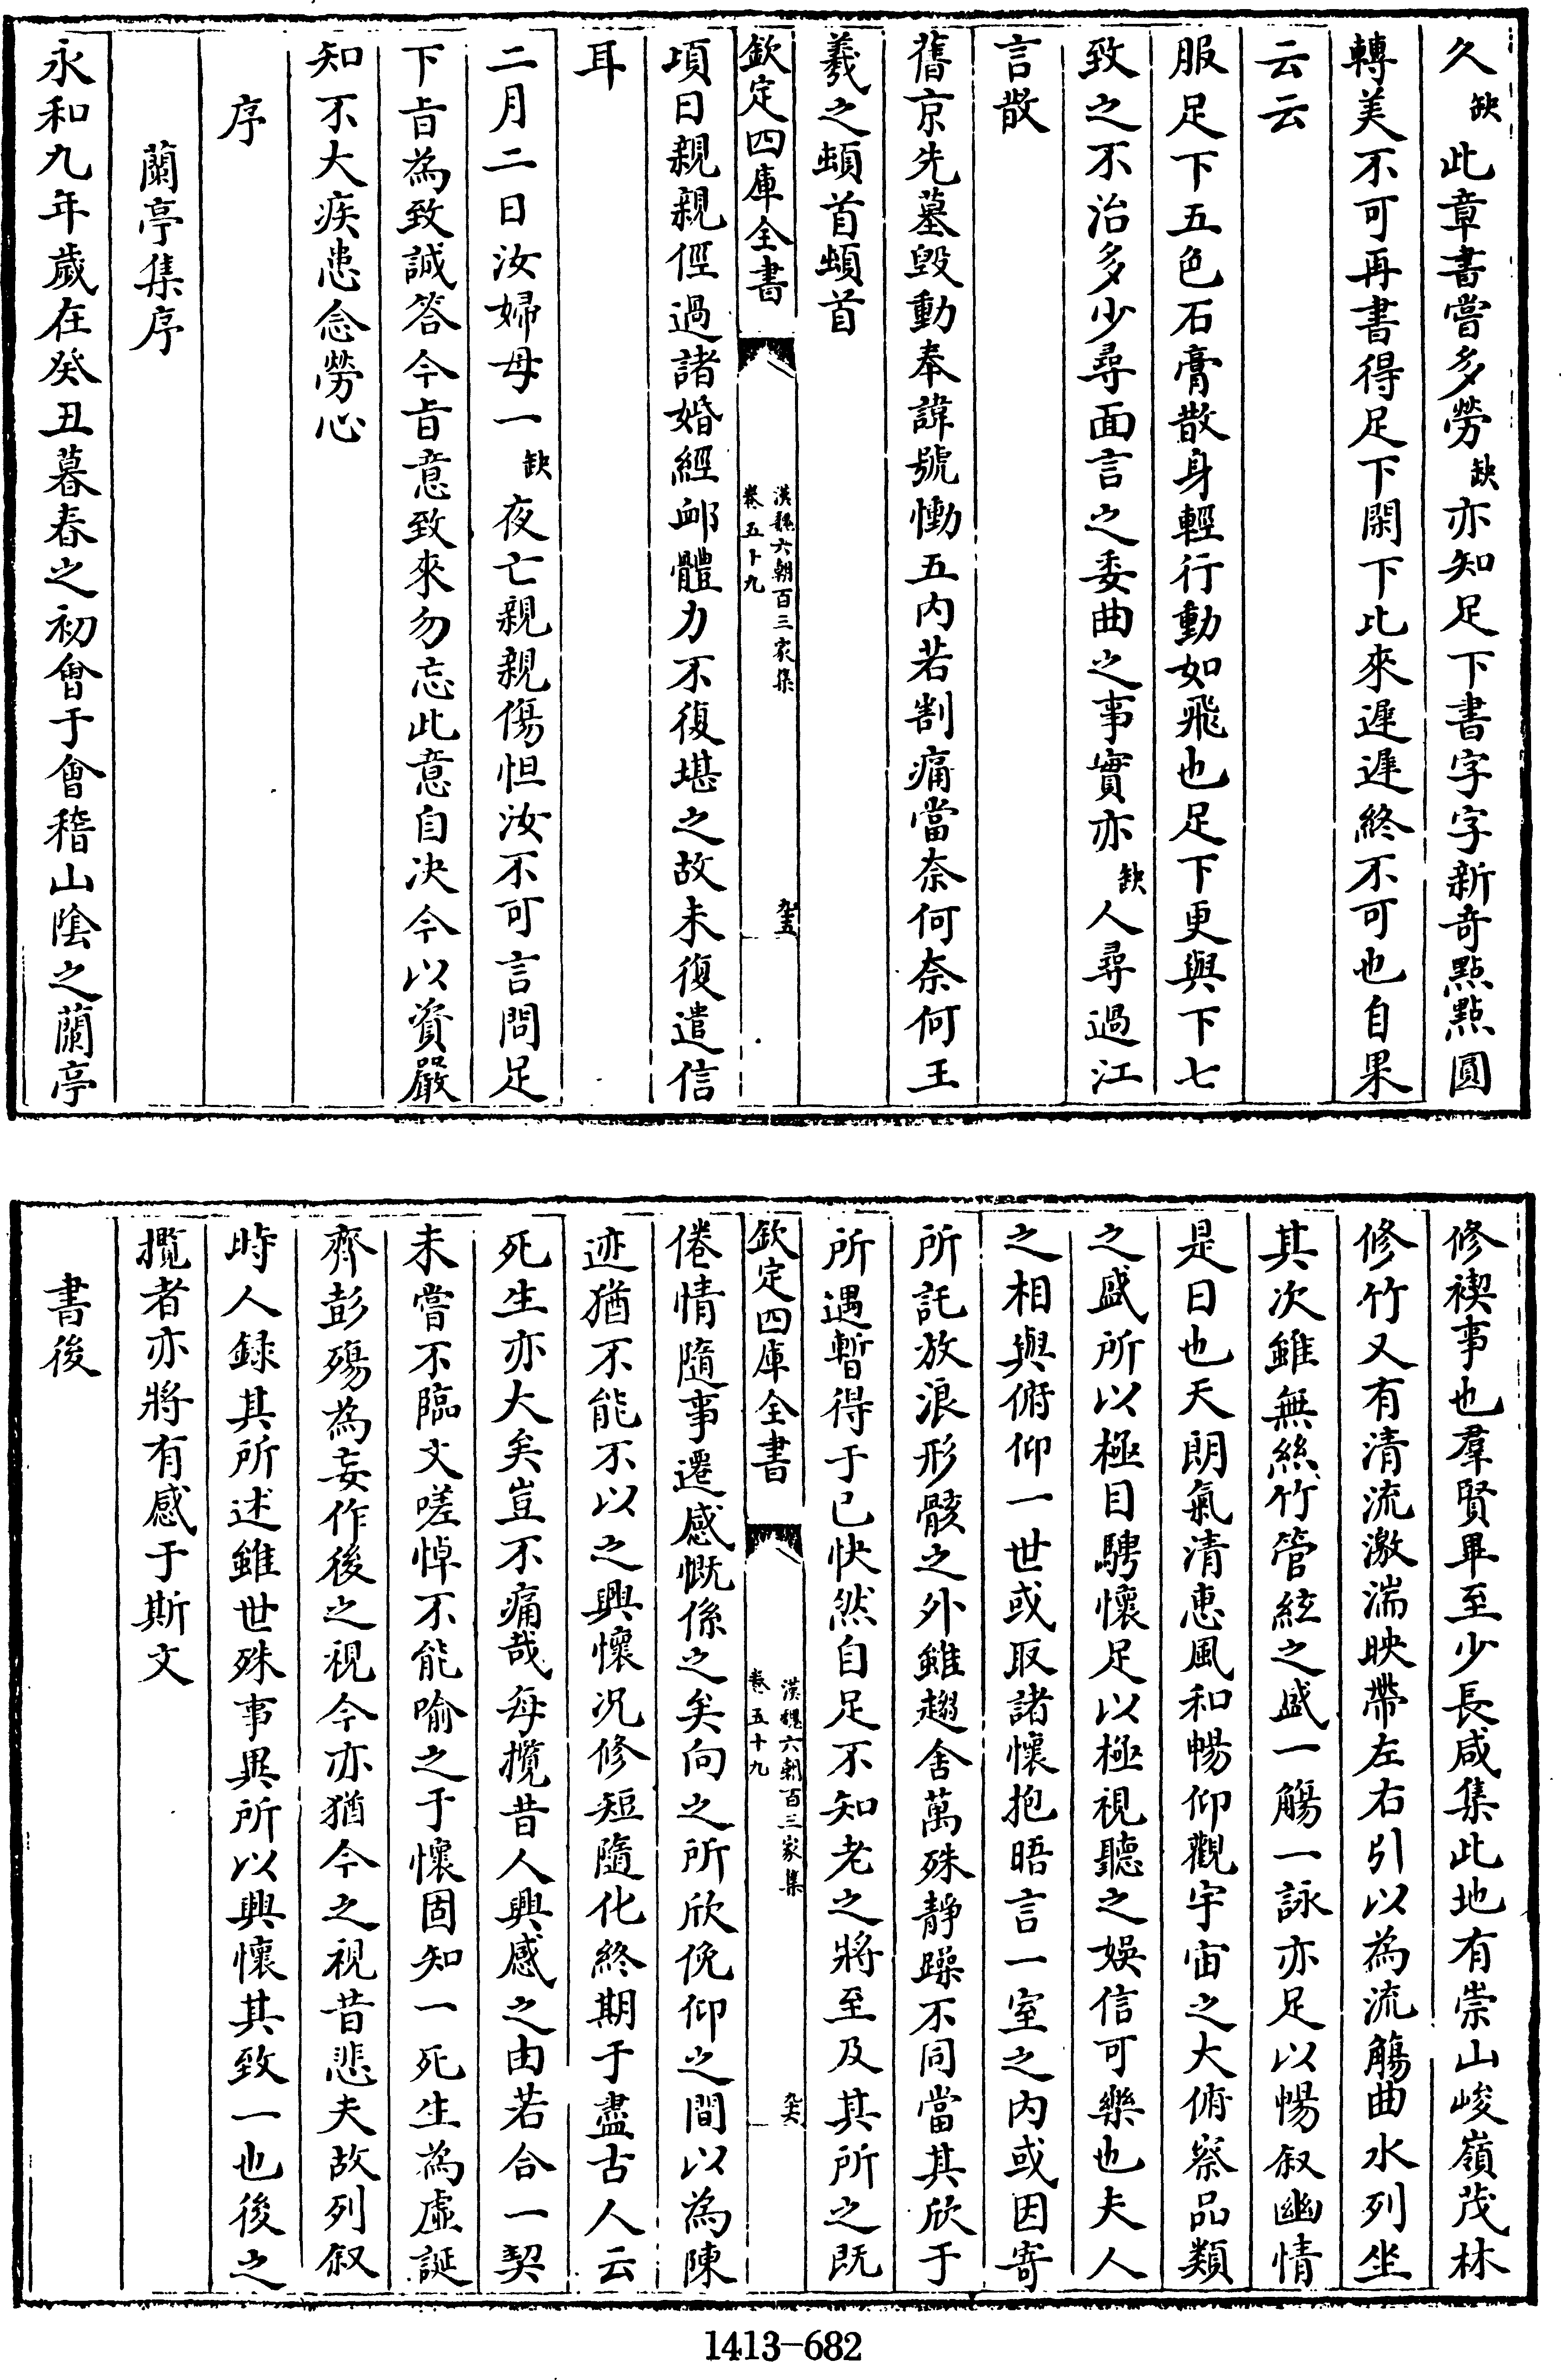 久缺此章書嘗多勞缺亦知足下書字字新奇點點圓
轉美不可再書得足下閑下比來遲遲終不可也自果
云云
服足下五色石膏散身輕行動如飛也足下更與下七
致之不治多少尋面言之委曲之事實亦缺人尋過江
言散
舊京先墓毀動奉諱號慟五内若割痛當奈何奈何王
羲之頓首頓首
欽定四庫全書
漢魏六朝百三家集
卷五十九
項日親親經過諸婚經䘏體力不復堪之故未復遣信
耳
二月二日汝婦母一缺夜亡親親傷怛汝不可言問足
下㫖為致誠答今㫖意致來勿忘此意自决今以資嚴
知不大疾患念勞心
序
蘭亭集序
永和九年歲在癸丑暮春之初㑹于㑹稽山陰之蘭亭
修禊事也羣賢畢至少長咸集此地有崇山峻嶺茂林
修竹又有清流激湍映帶左右引以為流觴曲水列坐
其次雖無絲竹管絃之盛一觴一詠亦足以暢叙幽情
是日也天朗氣清惠風和暢仰觀宇宙之大俯察品類
之盛所以極目騁懷足以極視聽之娛信可樂也夫人
之相與俯仰一世或取諸懷抱晤言一室之内或因寄
所託放浪形骸之外雖趨舍萬殊靜躁不同當其欣于
所遇暫得于已快然自足不知老之將至及其所之既
欽定四庫全書
漢魏六朝百三家集
卷五十九
倦情隨事遷感慨係之矣向之所欣俛仰之間以為陳
迹猶不能不以之興懷况修短隨化終期于盡古人云
死生亦大矣豈不痛哉每攬昔人興感之由若合一契
未嘗不臨文嗟悼不能喻之于懷固知一死生為虛誕
齊彭殤為妄作後之視今亦猶今之視昔悲夫故列叙
時人録其所述雖世殊事異所以興懷其致一也後之
攬者亦將有感于斯文
書後
1413-682